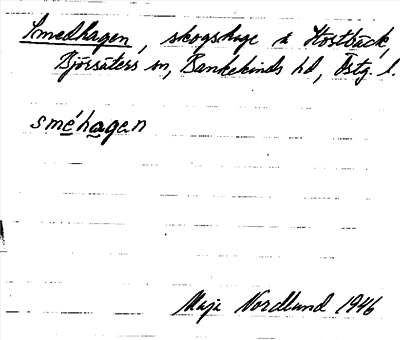 Smedhagen, skogshage å Hostbäck,
Björsäters sn, Bankekinds hd, Östg. l.
sméhagen
Maja Nordlund 1946